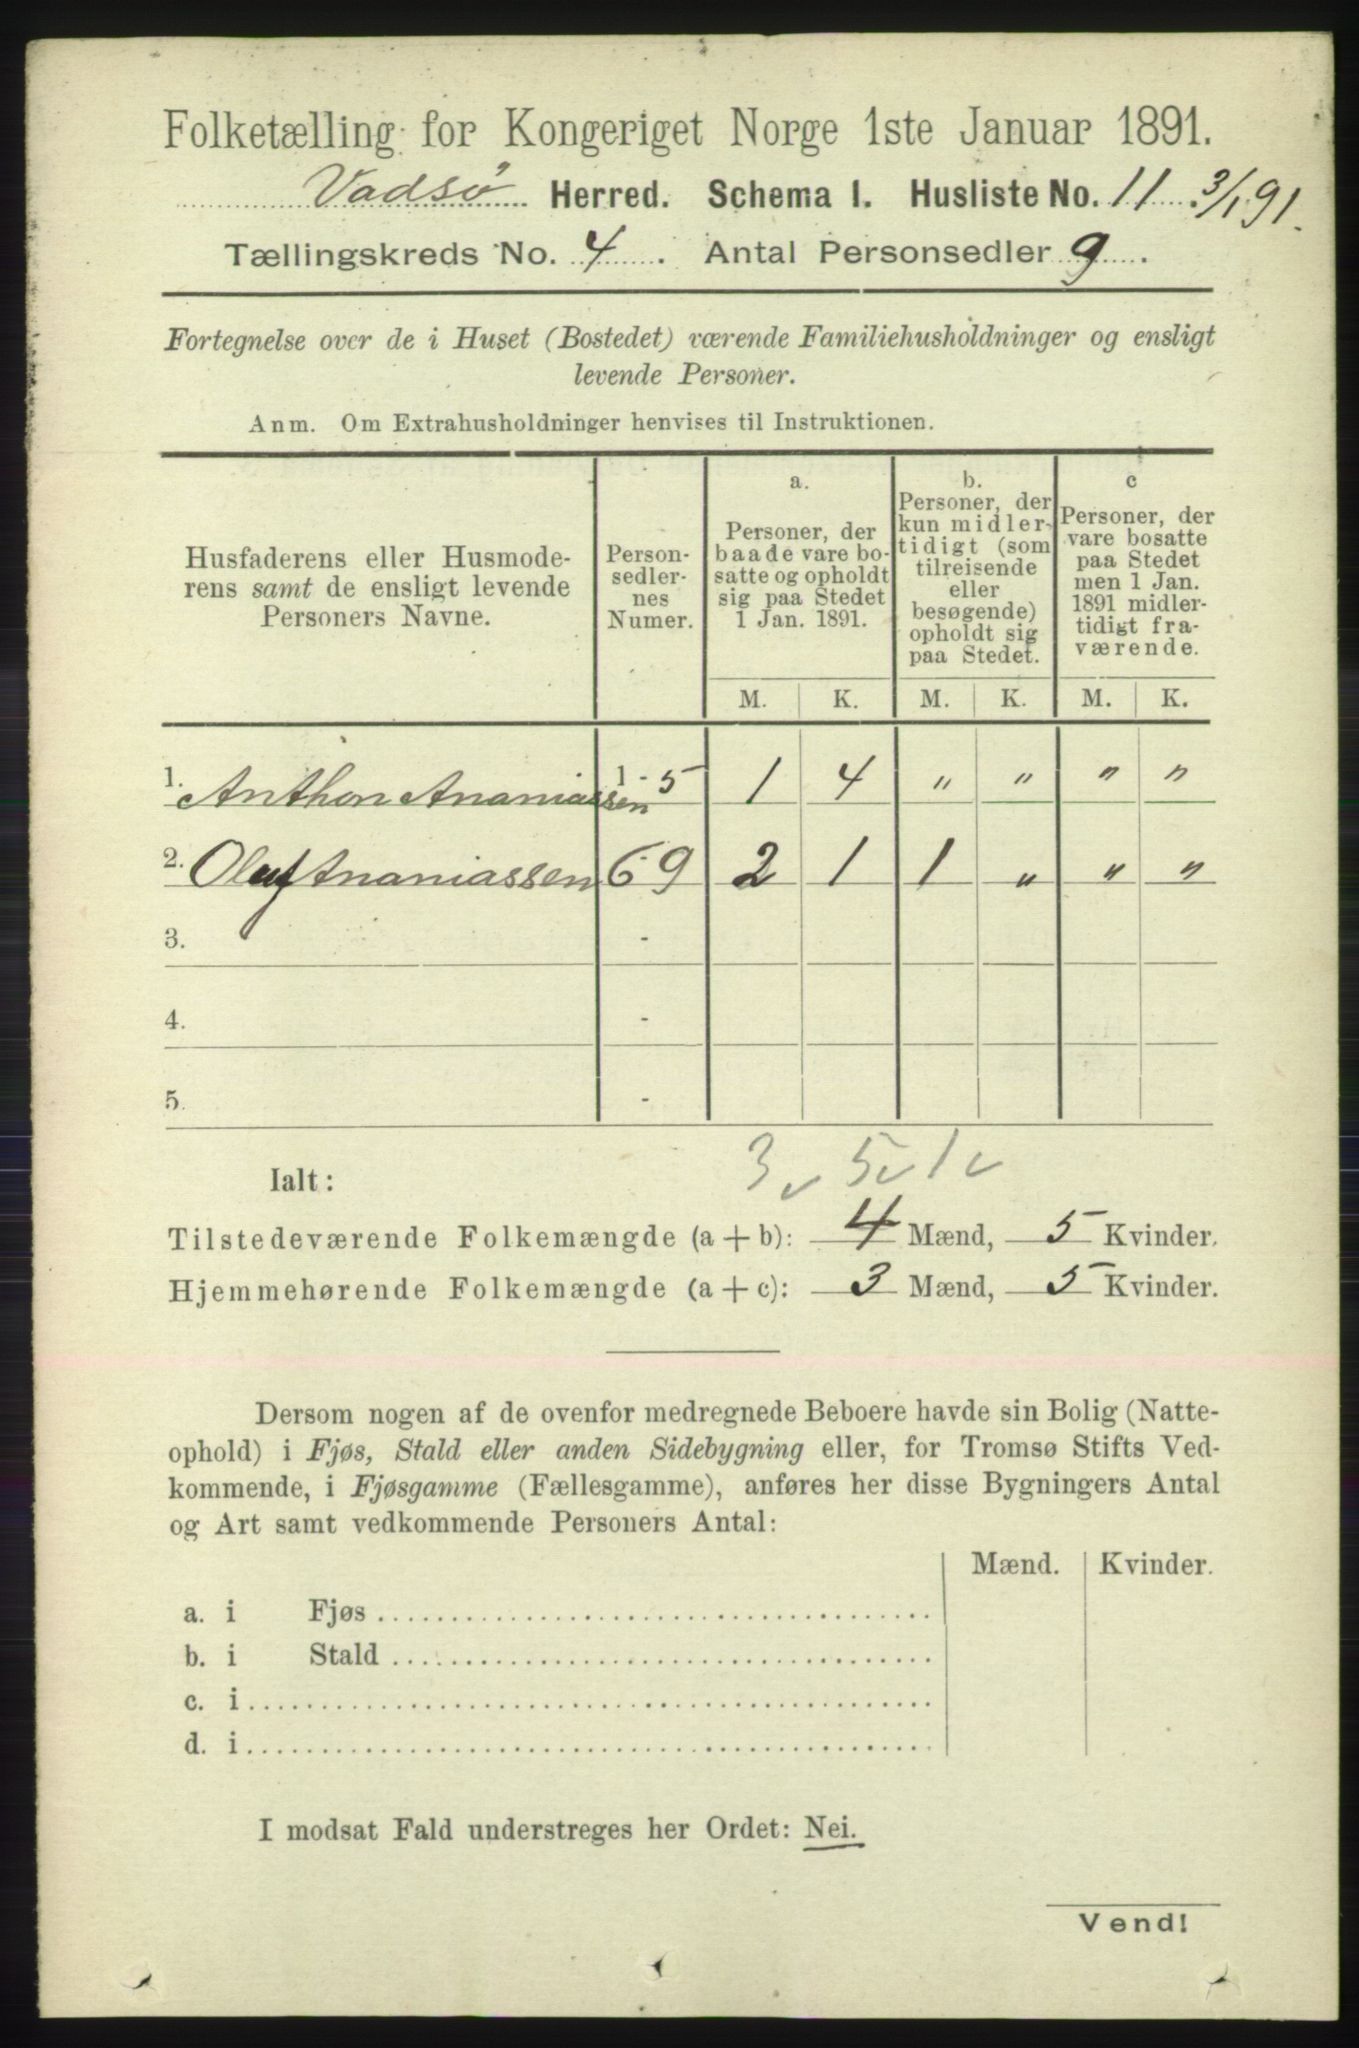 Folketælling for Kongeriget Norge 1ste Januar 1891.
Vadsø Herred. Schema I. Husliste No. 11. 3/1 91.
Tællingskreds No. 4. Antal Personsedler 9.
Fortegnelse over de i Huset (Bostedet) værende Familiehusholdninger og ensligt
levende Personer.
Anm. Om Extrahusholdninger henvises til Instruktionen.
Husfaderens eller Husmode-
rens samt de ensligt levende
Personers Navne.
Person-
sedler-
nes
Numer.
a.
Personer, der
baade vare bo-
satte og opholdt
sig paa Stedet
1 Jan. 1891.
b.
Personer, der
kun midler-
tidigt (som
tilreisende
eller
besøgende)
opholdt sig
paa Stedet.
c
Personer, der
vare bosatte
paa Stedet
men 1 Jan.
1891 midler-
tidigt fra-
værende.
M. K. M. K. M. K.
1. Anthon Ananiassen 1-5 1 4 " " " "
2. Oluf Ananiassen 6-9 2 1 1 " " "
3. -
4. -
5. -
3 5 1
Ialt:
Tilstedeværende Folkemængde (a + b): 4 Mænd, 5 Kvinder.
Hjemmehørende Folkemængde (a + c): 3 Mænd, 5 Kvinder.
Dersom nogen af de ovenfor medregnede Beboere havde sin Bolig (Natte-
ophold) i Fjøs, Stald eller anden Sidebygning eller, for Tromsø Stifts Ved-
kommende, i Fjøsgamme (Fællesgamme), anføres her disse Bygningers Antal
og Art samt vedkommende Personers Antal:
Mænd. Kvinder.
a. i Fjøs
b. i Stald
c. i
d. i
I modsat Fald understreges her Ordet: Nei.
Vend!